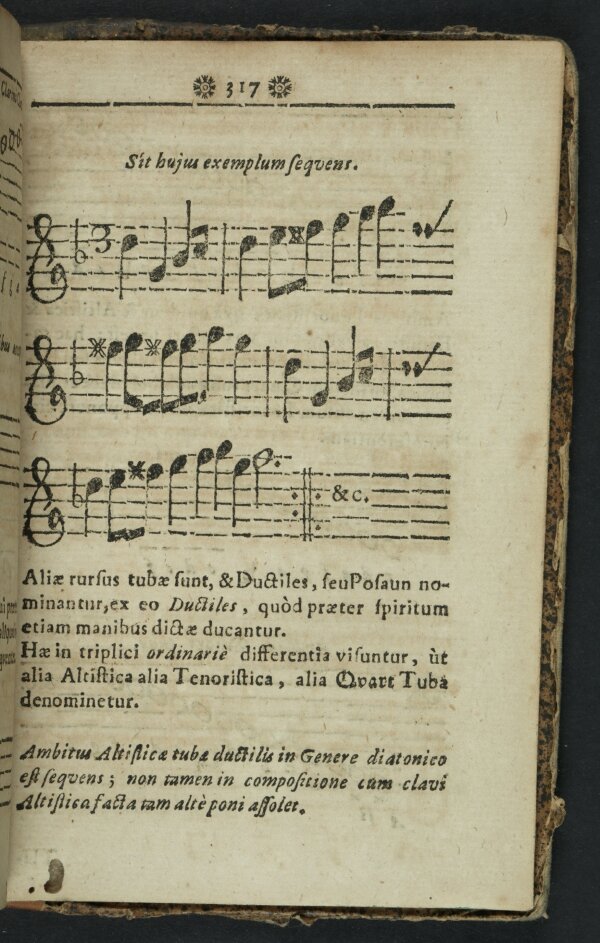 317
Sit hujus exemplum seqvens.
3
&c.
Aliæ rursus tubæ sunt, & Ductiles, seu Posaun no-
minantur, ex eo Ductiles, quòd præter spiritum
etiam manibus dictæ ducantur.
Hæ in triplici ordinariè differentia visuntur, ùt
alia Altistica alia Tenoristica, alia Qvart Tuba
denominetur.
Ambitus Altisticæ tubæ ductilis in Genere diatonico
est seqvens; non tamen in compositione cum clavi
Altistica facta tam altè poni assolet.